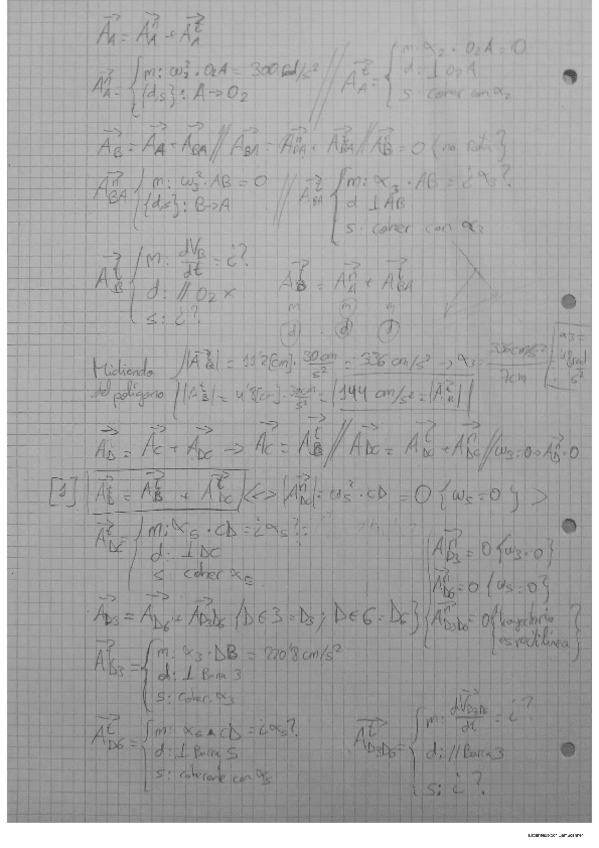 A⃗_A = A⃗_A^n + A⃗_A^t
A⃗_A^n = { m: ω₂² · O₂A = 300 cm/s² // A⃗_A^t = { m: α₂ · O₂A = 0
{d,s}: A → O₂ d: ⊥ O₂A
s: coher con α₂
A⃗_B = A⃗_A + A⃗_BA // A⃗_BA = A⃗_BA^n + A⃗_BA^t // A⃗_B^n = 0 {no rota}
A⃗_BA^n { m: ω₃² · AB = 0 // A⃗_BA^t { m: α₃ · AB = ¿α₃?
{d,s}: B→A d ⊥ AB
s: coher con α₃
A⃗_B^t { m: dV_B/dt = ¿?
d: // O₂x A⃗_B^t = A⃗_A^n + A⃗_BA^t
s: ¿? m m m
d d d
Midiendo del polígono { |A⃗_BA^t| = 11'2[cm] · 30cm/s² = 336 cm/s² → α₃ = 336cm/s²/7cm = α₃ = 48 rad/s²
|A⃗_B^t| = 4'8[cm] · 30cm/s² = 144 cm/s² = |A⃗_B^t|
A⃗_D = A⃗_C + A⃗_DC → A⃗_C = A⃗_B^t // A⃗_DC = A⃗_DC^t + A⃗_DC^n // ω₃=0→A_B^n=0
[1] A⃗_D = A⃗_B^t + A⃗_DC^t <-> |A⃗_DC^n|: ω₅² · CD = 0 {ω₅ = 0}
A⃗_DC^t = { m: α₅ · CD = ¿α₅?
d: ⊥ DC
s coher α₅
A⃗_D3^n = 0 {ω₃=0}
A⃗_D6^n = 0 {ω₅=0}
A⃗_D3 = A⃗_D6 + A⃗_D3D6 {D∈3 = D₃; D∈6 = D₆} A⃗_D3D6^n = 0 {trayectoria es rectilínea}
A⃗_D3^t = { m: α₃ · DB = 220'8 cm/s²
d: ⊥ Barra 3
s: coher. α₃
A⃗_D6^t = { m: α₅ · CD = ¿α₅? A⃗_D3D6^t = { m: dV_D3D6/dt = ¿?
d: ⊥ Barra 5 d: // Barra 3
s: coherente con α₅ s: ¿?